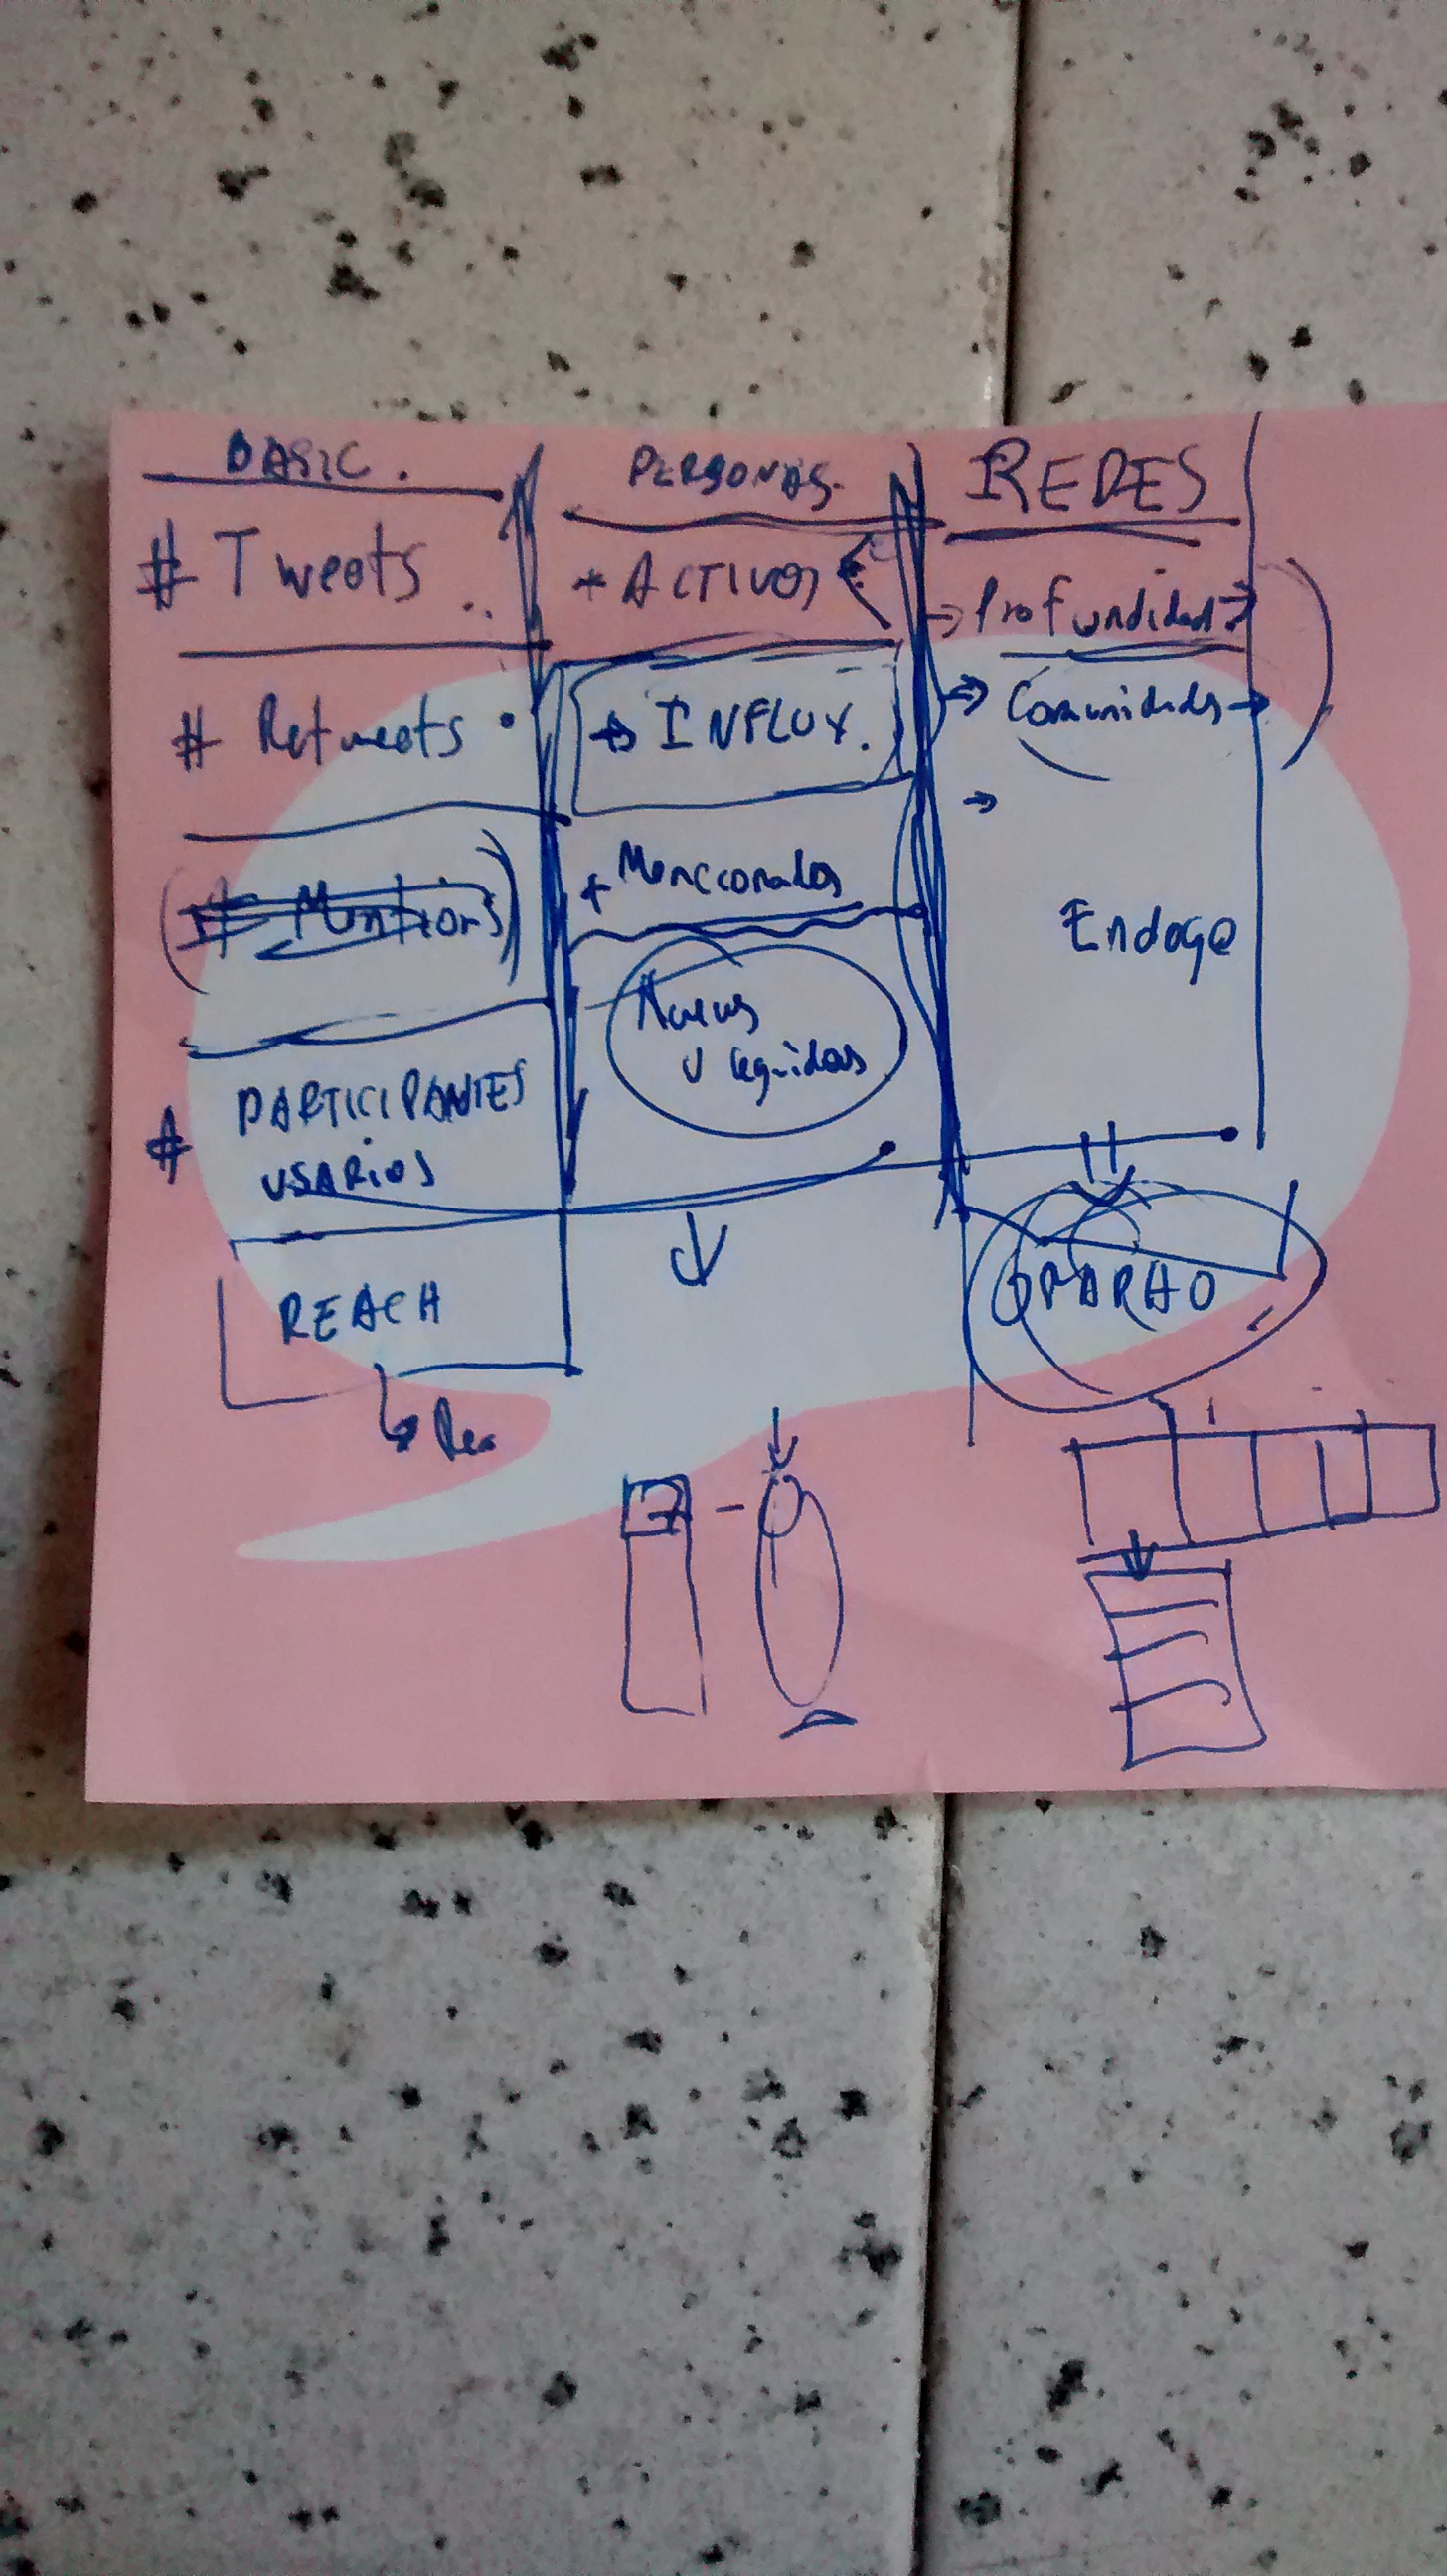 BASIC.
# Tweets
# Retweets
# Mentions
# PARTICIPANTES
USARIOS
REACH
PERSONAS
+ ACTIVOS
→ INFLUY.
+ Menccionados
Nuevos
REDES
→ Profundidad →
→ Comunidades →
→